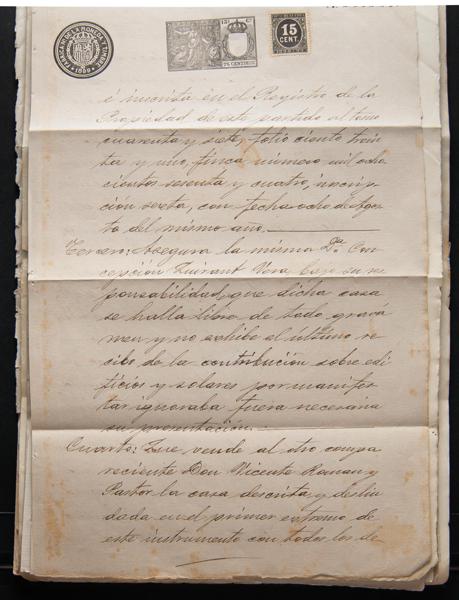 FABRICA N. DE LA MONEDA Y TIMBRE
1899
75 CENTIMOS
15
CENT.
é inscrita en el Registro de la
Propiedad de este partido al tomo
cuarenta y siete, folio ciento trein
ta y uno, finca número mil ocho
cientos sesenta y cuatro, inscrip
ción sexta, con fecha ocho de Agos
to del mismo año.
Tercero: Asegura la misma Dª Con
cepción Vera bajo su res
ponsabilidad, que dicha casa
se halla libre de todo gravá
men y no exhibe el último re
cibo de la contribución sobre edi
ficios y solares por manifes
tar ignoraba fuera necesaria
su presentación.
Cuarto: Que vende al otro compa
reciente Don Vicente y
Pastor la casa descrita y deslin
dada en el primer extremo de
este instrumento con todos los de